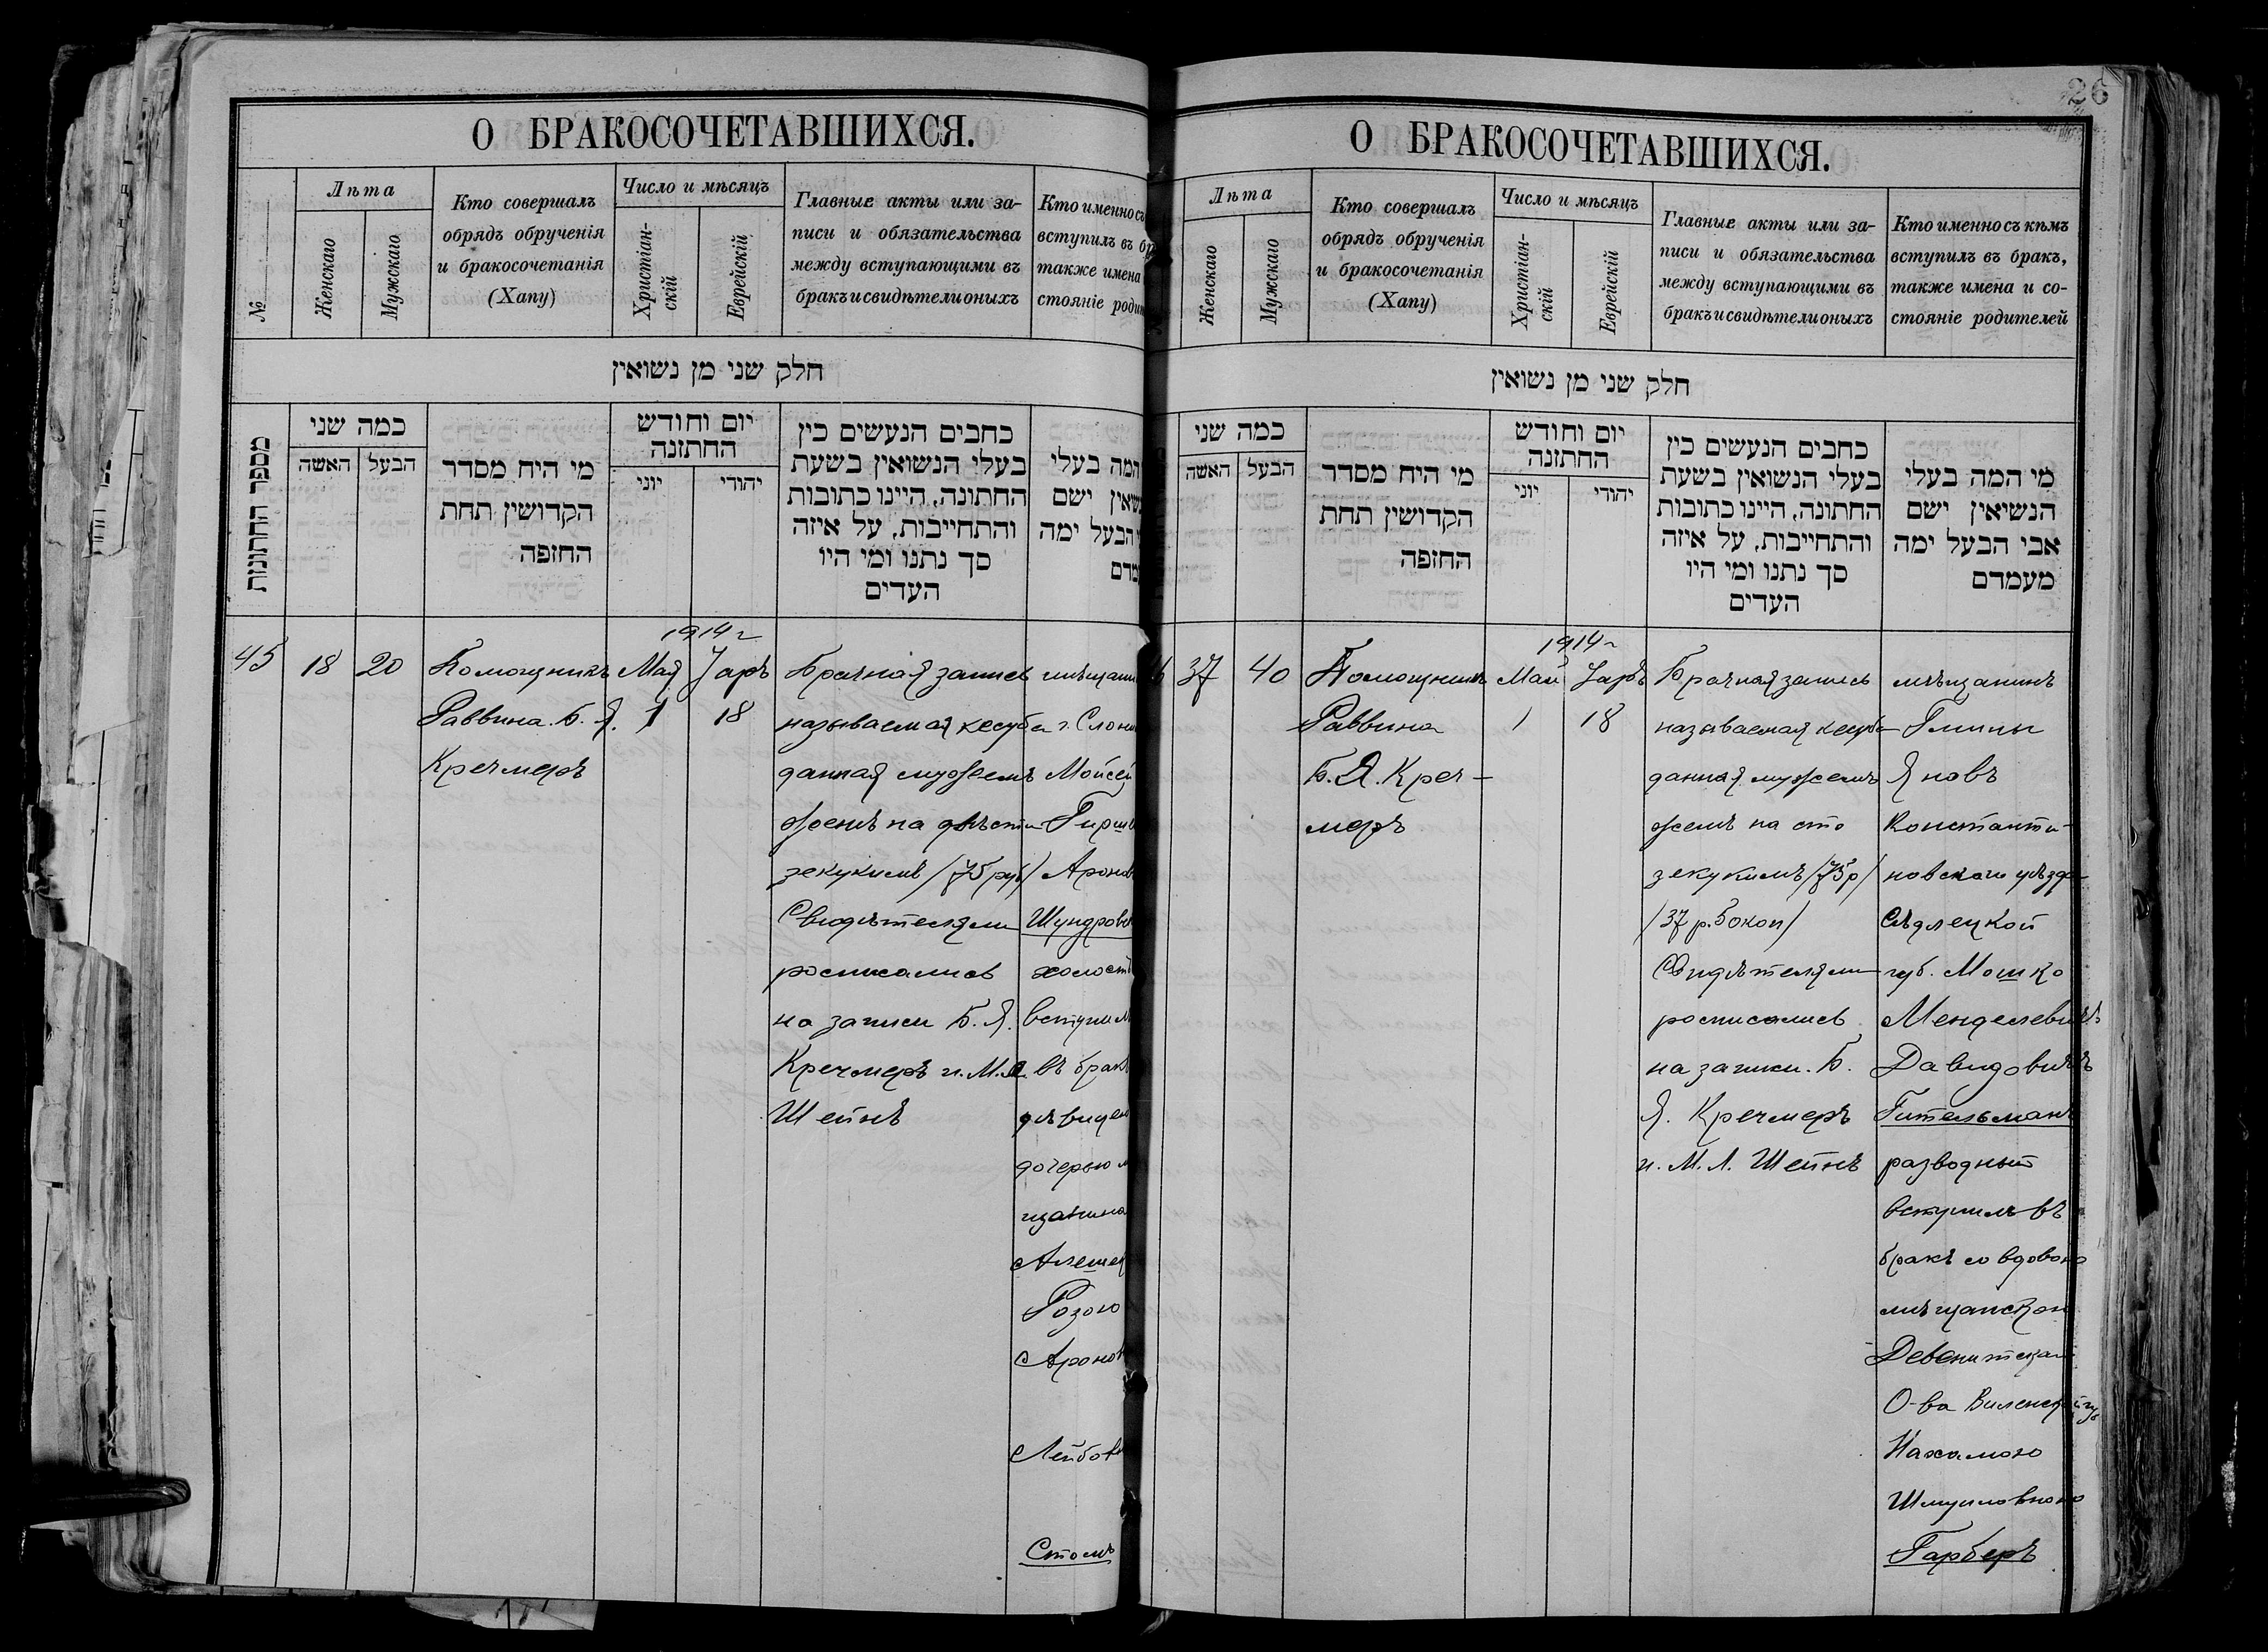 О БРАКОСОЧЕТАВШИХСЯ.
№
Лѣта
Женскаго
Мужскаго
Кто совершалъ
обрядъ обрученія
и бракосочетанія
(Хапу)
Число и мѣсяцъ
Христіан-
скій
Еврейскій
Главные акты или за-
писи и обязательства
между вступающими въ
бракъ и свидѣтели оныхъ
Кто именно съ
вступилъ въ бр
также имена
стояніе роди
חלק שני מן נשואין
מספר החתונות
כמה שני
האשה
הבעל
מי היח מסדר
הקדושין תחת
החזפה
יום וחודש
החתזנה
יוני
יהודי
כחבים הנעשים כין
בעלי הנשואין בשעת
החתונה, היינו כתובות
והתחייבות, על איזה
סך נתנו ומי היו
העדים
המה בעלי
שאין ישם
הבעל ימה
מדם
45
18
20
Помощникъ
Раввина Б. Я.
Кречмеръ
1914 г
Мая
1
Іаръ
18
Брачная запись
называемая кесуба
данная мужемъ
женѣ на двѣсти
зекукимъ /75 руб/
Свидѣтелями
росписались
на записи Б. Я.
Кречмеръ и М. Л.
Шейнъ
мѣщани
г. Слони
Мойсей
Гирш
Аронов
Шундров
холостъ
вступил
въ бракъ
дѣвице
дочерью м
щанина
Розою
Аронов
Лейбов
Столъ
26
О БРАКОСОЧЕТАВШИХСЯ.
Лѣта
Женскаго
Мужскаго
Кто совершалъ
обрядъ обрученія
и бракосочетанія
(Хапу)
Число и мѣсяцъ
Христіан-
скій
Еврейскій
Главные акты или за-
писи и обязательства
между вступающими въ
бракъ и свидѣтели оныхъ
Кто именно съ кѣмъ
вступилъ въ бракъ,
также имена и со-
стояніе родителей
חלק שני מן נשואין
כמה שני
האשה
הבעל
מי היח מסדר
הקדושין תחת
החזפה
יום וחודש
החתזנה
יוני
יהודי
כחבים הנעשים כין
בעלי הנשואין בשעת
החתונה, היינו כתובות
והתחייבות, על איזה
סך נתנו ומי היו
העדים
מי המה בעלי
הנשיאין ישם
אבי הבעל ימה
מעמדם
6
37
40
Помощникъ
Раввина
Б. Я. Креч-
меръ
1914 г
Май
1
Іаръ
18
Брачная запись
называемая кесуба
данная мужемъ
женѣ на сто
зекукимъ /75 р/
/37 р. 50 коп/
Свидѣтелями
росписались
на записи. Б.
Я. Кречмеръ
и. М. Л. Шейнъ
мѣщанинъ
Гмины
Яновъ
Константи-
новскаго уѣзда
Сѣдлецкой
губ. Мошко
Менделевичъ
Давидовичъ
Гительманъ
разводный
вступилъ въ
бракъ со вдовою
мѣщанской
О-ва Виленской губ
Нахамою
Шмуиловною
Гарберъ